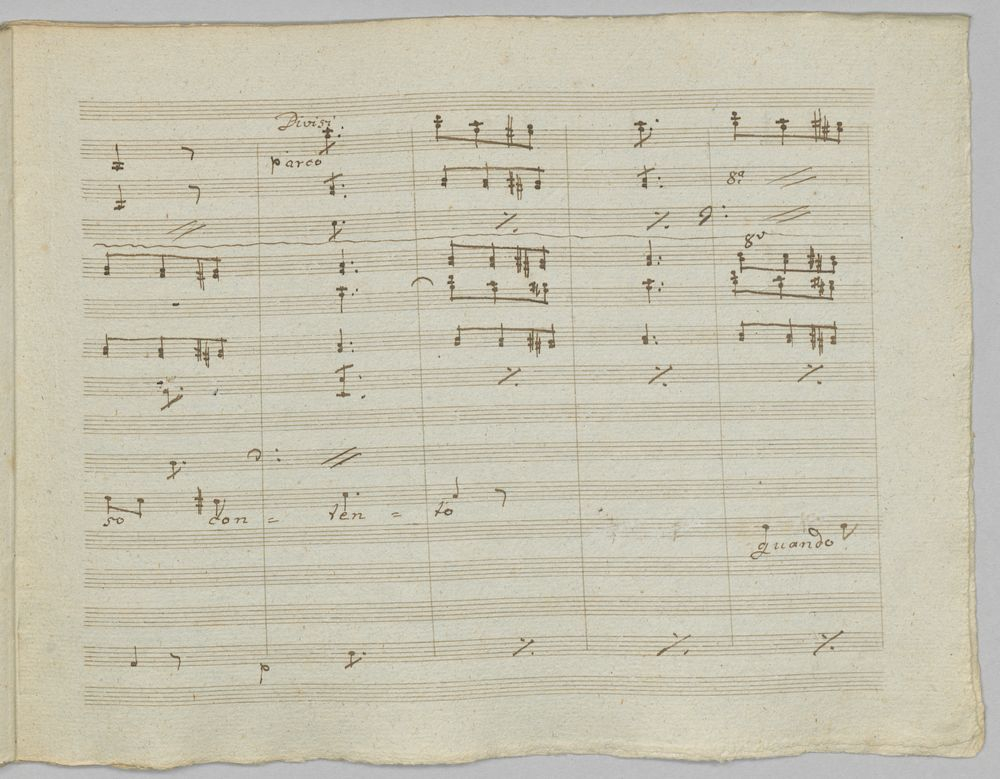 Divisi
p arco
8ª
8ª
so con = ten = to
quando
p